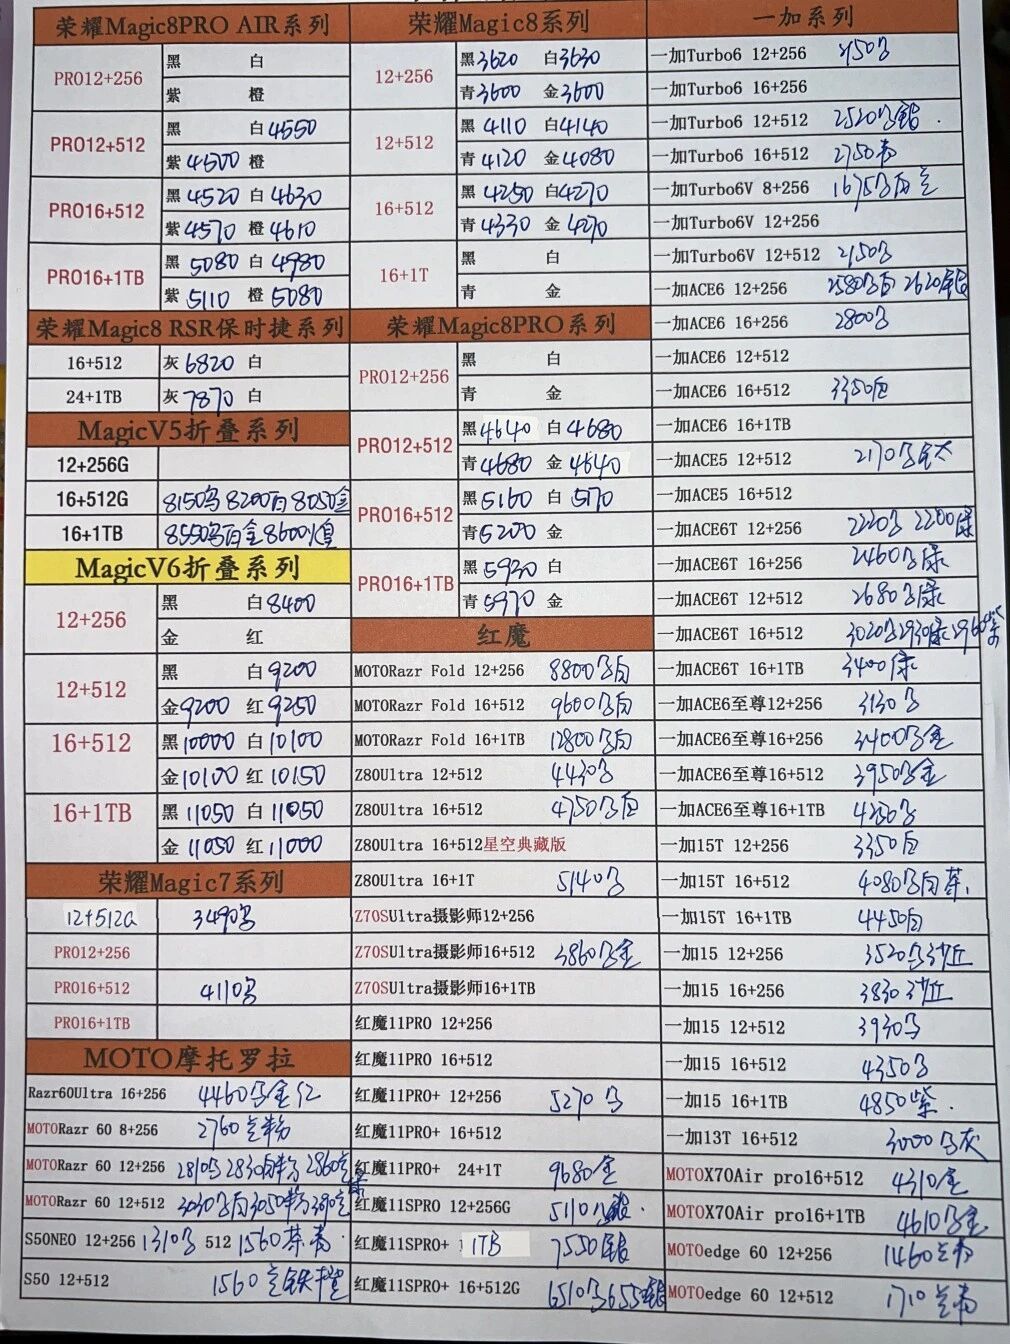 荣耀Magic8PRO AIR系列
PRO12+256 黑 白
紫 橙
PRO12+512 黑 白4550
紫4600 橙
PRO16+512 黑4520 白4630
紫4570 橙4610
PRO16+1TB 黑5080 白4980
紫5110 橙5080
荣耀Magic8 RSR保时捷系列
16+512 灰6820 白
24+1TB 灰7870 白
MagicV5折叠系列
12+256G
16+512G 8150 8200白 8050金
16+1TB 8550 白金8600
MagicV6折叠系列
12+256 黑 白8400
金 红
12+512 黑 白9200
金9200 红9250
16+512 黑10000 白10100
金10100 红10150
16+1TB 黑11050 白11050
金11050 红11000
荣耀Magic7系列
12+512G 3490
PRO12+256
PRO16+512 4110
PRO16+1TB
MOTO摩托罗拉
Razr60Ultra 16+256 4460 金红
MOTORazr 60 8+256 2760 粉
MOTORazr 60 12+256 2810 2830 2860
MOTORazr 60 12+512 3030 白3050
S50NEO 12+256 1310 512 1560
S50 12+512 1560
荣耀Magic8系列
12+256 黑3620 白3630
青3600 金3600
12+512 黑4110 白4140
青4120 金4080
16+512 黑4250 白4270
青4330 金4270
16+1T 黑 白
青 金
荣耀Magic8PRO系列
PRO12+256 黑 白
青 金
PRO12+512 黑4640 白4680
青4680 金4640
PRO16+512 黑5160 白5170
青5200 金
PRO16+1TB 黑5920 白
青5970 金
红魔
MOTORazr Fold 12+256 8800 白
MOTORazr Fold 16+512 9600 白
MOTORazr Fold 16+1TB 12800 白
Z80Ultra 12+512 4430
Z80Ultra 16+512 4750 白
Z80Ultra 16+512星空典藏版
Z80Ultra 16+1T 5140
Z70SUltra摄影师12+256
Z70SUltra摄影师16+512 3860 金
Z70SUltra摄影师16+1TB
红魔11PRO 12+256
红魔11PRO 16+512
红魔11PRO+ 12+256 5270
红魔11PRO+ 16+512
红魔11PRO+ 24+1T 9680金
红魔11SPRO 12+256G 5110 银
红魔11SPRO+ 1TB 7550银
红魔11SPRO+ 16+512G 6510 655 银
一加系列
一加Turbo6 12+256
一加Turbo6 16+256
一加Turbo6 12+512 2520
一加Turbo6 16+512 2750
一加Turbo6V 8+256 1675
一加Turbo6V 12+256
一加Turbo6V 12+512 2150
一加ACE6 12+256 2580 白 2620银
一加ACE6 16+256 2800
一加ACE6 12+512
一加ACE6 16+512 3350白
一加ACE6 16+1TB
一加ACE5 12+512 2170 钛
一加ACE5 16+512
一加ACE6T 12+256 2220 2200绿
一加ACE6T 16+256 2460 绿
一加ACE6T 12+512 2680 绿
一加ACE6T 16+512 3020 2930绿 2960紫
一加ACE6T 16+1TB 3400绿
一加ACE6至尊12+256 3130
一加ACE6至尊16+256 3400 金
一加ACE6至尊16+512 3950 金
一加ACE6至尊16+1TB 4250
一加15T 12+256 3350白
一加15T 16+512 4080 白
一加15T 16+1TB 4450白
一加15 12+256 3520 沙丘
一加15 16+256 3830 沙丘
一加15 12+512 3930
一加15 16+512 4350
一加15 16+1TB 4850紫
一加13T 16+512 3000 灰
MOTOX70Air pro16+512 4310 金
MOTOX70Air pro16+1TB 4610 金
MOTOedge 60 12+256 1460
MOTOedge 60 12+512 1710